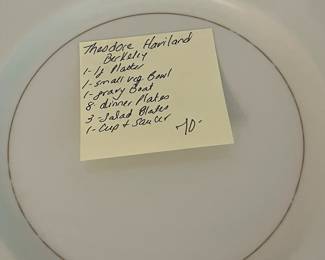 Theodore Haviland
Berkeley
1- lg Platter
1- small veg Bowl
1- gravy Boat
8- dinner Plates
3- Salad Plates
1- Cup & Saucer
70-